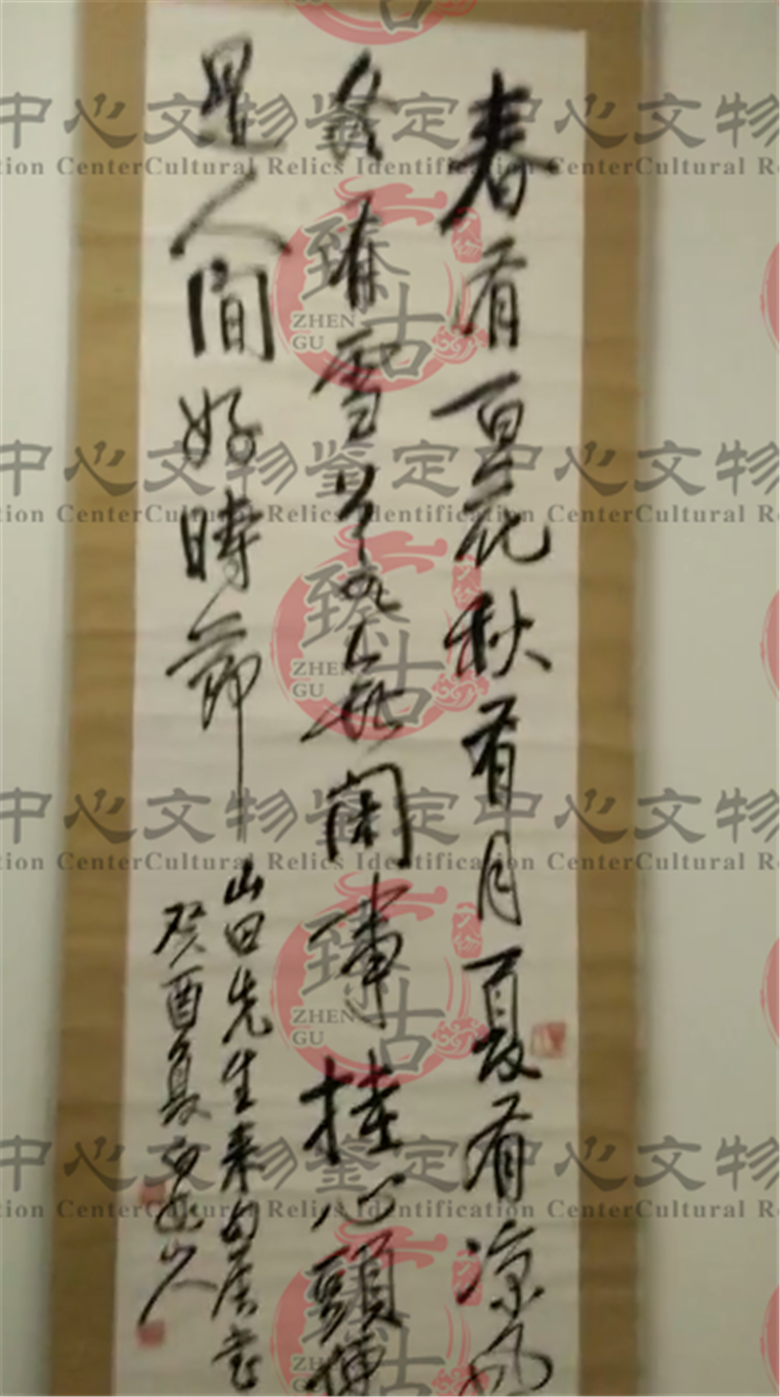 春有百花秋有月夏有凉风
冬有雪若無閑事挂心頭便
是人間好時節
山田先生
癸酉夏山人
中心文物鉴定中心文物
tion CenterCultural Relics Identification CenterCultural R
臻古
ZHEN GU
文物
中心文物鉴定中心文物
tion CenterCultural Relics Identification CenterCultural R
臻古
ZHEN GU
中心文物鉴定中心文物
tion CenterCultural Relics Identification CenterCultural R
臻古
ZHEN GU
中心文物鉴定中心文物
tion CenterCultural Relics Identification CenterCultural R